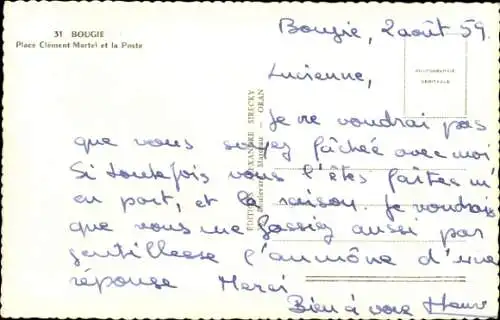 31 BOUGIE
Place Clément Martel et la Poste
Bougie, 2 août 59.
Lucienne,
Je ne voudrai pas
que vous soyez fâchée avec moi
Si toutefois vous l'êtes faites m'
en part, et la raison. Je voudrais
que vous me fassiez aussi par
gentillesse l'aumône d'une
réponse Merci
Bien à vous
PHOTOGRAPHIE
VÉRITABLE
ALEXANDRE SIRECKY
ORAN